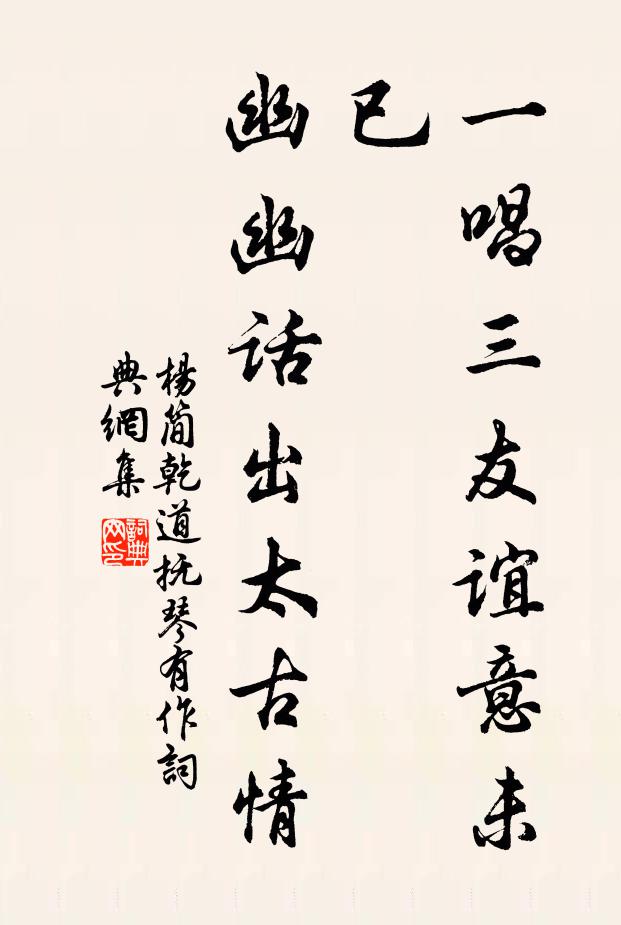 一唱三友谊意未
已
幽幽话出太古情
楊简乾道抚琴有作詞
典網集
詞典网印